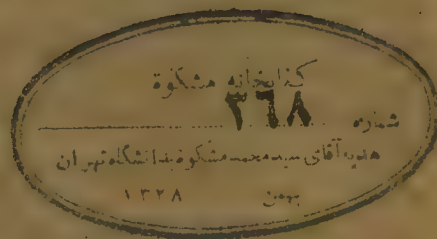 کتابخانه مشکوة
شماره ۳٦۸
هدیه آقای سید محمد مشکوة بدانشگاه تهران
بهمن ۱۳۲۸